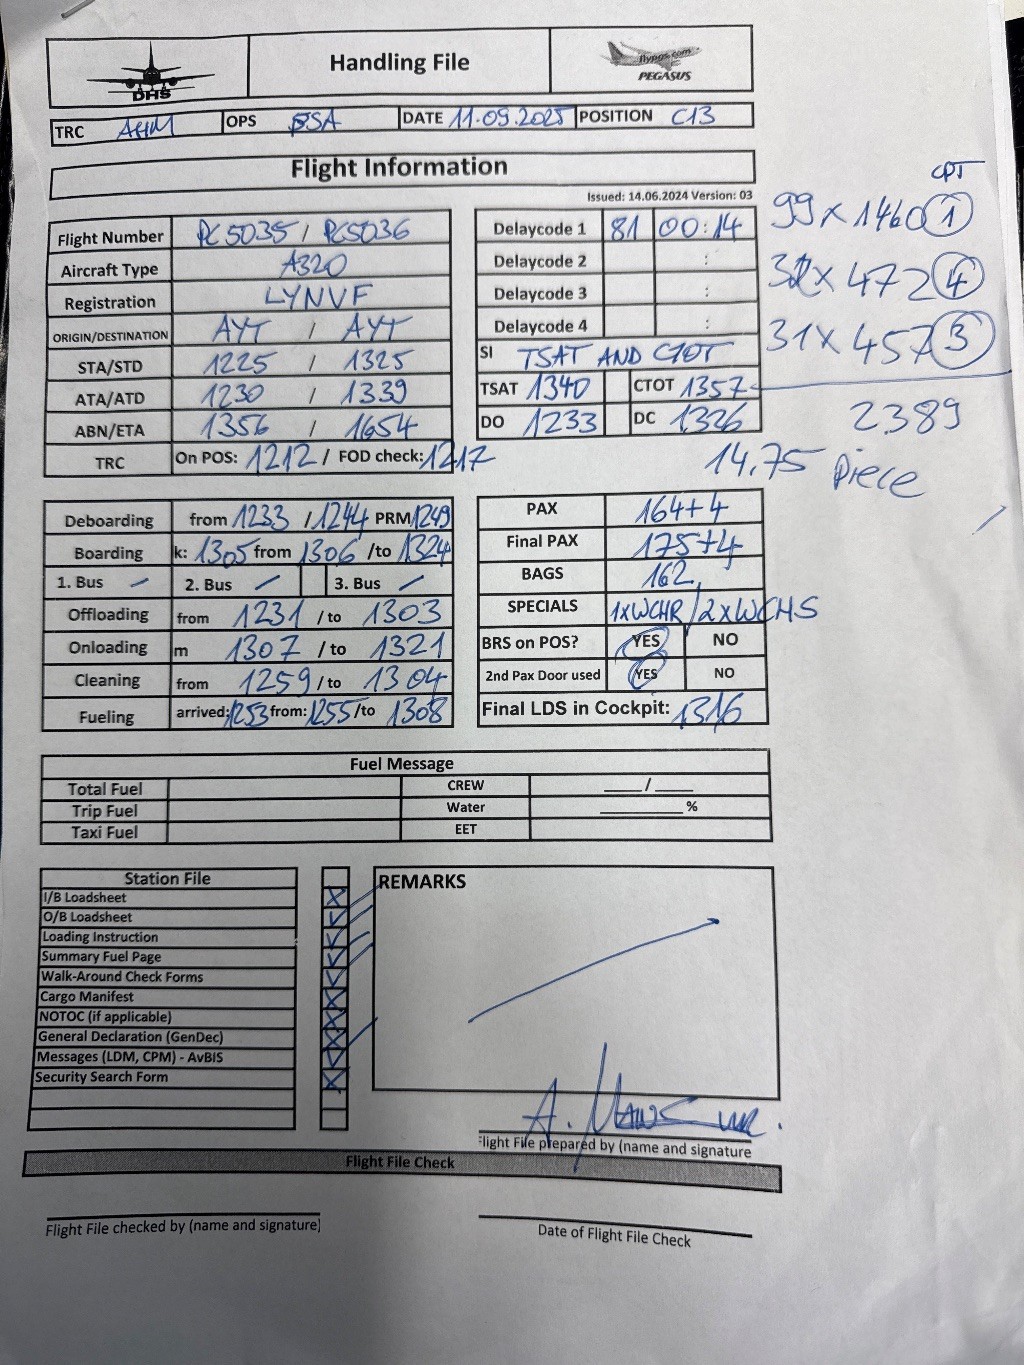 DHS
Handling File
flypgs.com
PEGASUS
TRC AHM OPS BSA DATE 11.09.2025 POSITION C13
Flight Information
Issued: 14.06.2024 Version: 03
Flight Number PC5035 / PC5036
Aircraft Type A320
Registration LYNVF
ORIGIN/DESTINATION AYT / AYT
STA/STD 1225 / 1325
ATA/ATD 1230 / 1339
ABN/ETA 1356 / 1654
TRC On POS: 1212 / FOD check: 1217
Delaycode 1 81 00:14
Delaycode 2 :
Delaycode 3 :
Delaycode 4 :
SI TSAT AND CTOT
TSAT 1340 CTOT 1357
DO 1233 DC 1326
CPT
99 x 1460 1
32 x 472 4
31 x 457 3
2389
14,75 Piece
Deboarding from 1233 / 1244 PRM 1249
Boarding k: 1305 from 1306 /to 1324
1. Bus – 2. Bus – 3. Bus –
Offloading from 1231 / to 1303
Onloading m 1307 / to 1321
Cleaning from 1259 / to 1304
Fueling arrived: 1253 from: 1255 /to 1308
PAX 164+4
Final PAX 175+4
BAGS 162
SPECIALS 1xWCHR/2xWCHS
BRS on POS? YES NO
2nd Pax Door used YES NO
Final LDS in Cockpit: 1316
Fuel Message
Total Fuel CREW ____/____
Trip Fuel Water ________%
Taxi Fuel EET
Station File
I/B Loadsheet
O/B Loadsheet
Loading Instruction
Summary Fuel Page
Walk-Around Check Forms
Cargo Manifest
NOTOC (if applicable)
General Declaration (GenDec)
Messages (LDM, CPM) - AvBIS
Security Search Form
REMARKS
A.
Flight File prepared by (name and signature
Flight File Check
Flight File checked by (name and signature)
Date of Flight File Check